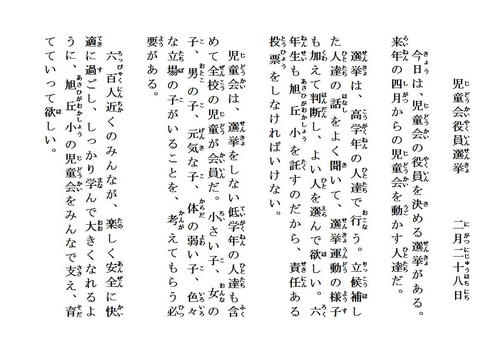 児童会役員選挙　　二月二十八日
今日は、児童会の役員を決める選挙がある。
来年の四月からの児童会を動かす人達だ。
選挙は、高学年の人達で行う。立候補し
た人達の話をよく聞いて、選挙運動の様子
も加えて判断し、よい人を選んで欲しい。六
年生も旭丘小を託すのだから、責任ある
投票をしなければいけない。
児童会は、選挙をしない低学年の人達も含
めて全校の児童が会員だ。小さい子、女の
子、男の子、元気な子、体の弱い子、色々
な立場の子がいることを、考えてもらう必
要がある。
六百人近くのみんなが、楽しく安全に快
適に過ごし、しっかり学んで大きくなれるよ
うに、旭丘小の児童会をみんなで支え、育
てていって欲しい。